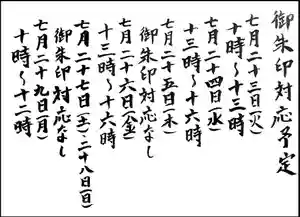 御朱印対応予定
七月二十三日(火)
十時～十三時
七月二十四日(水)
十三時～十六時
七月二十五日(木)
御朱印対応なし
七月二十六日(金)
十三時～十六時
七月二十七日(土)、二十八日(日)
御朱印対応なし
七月二十九日(月)
十時～十二時